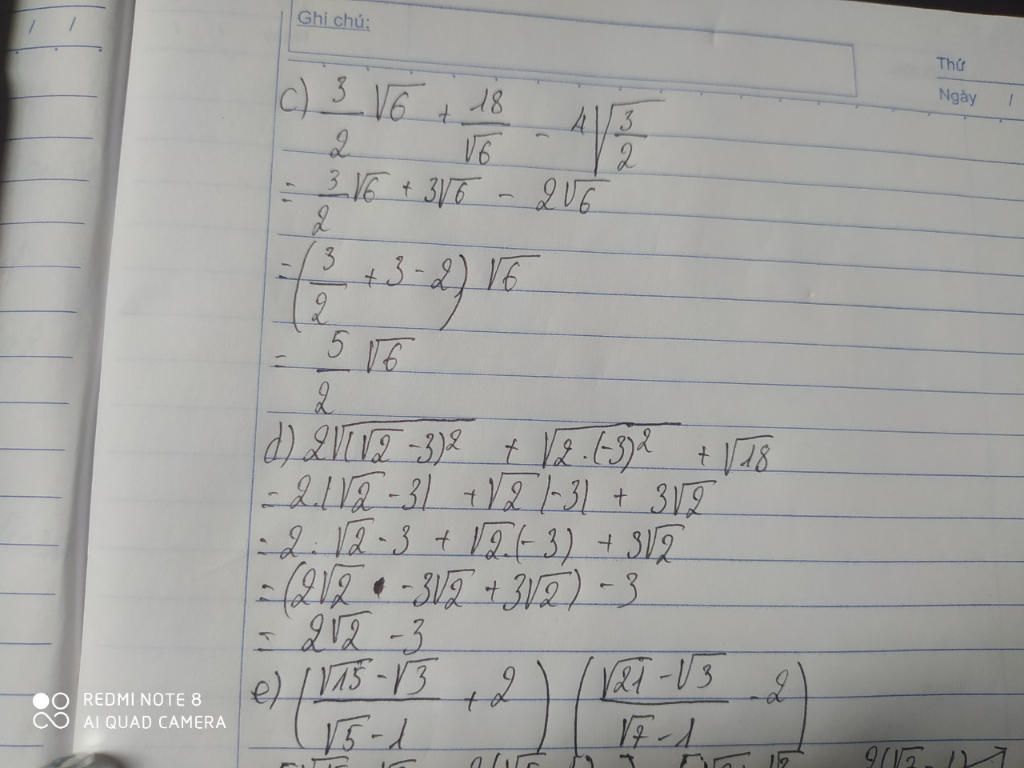 Ghi chú:
Thứ
Ngày /
/ /
c) 3/2 √6 + 18/√6 - 4√(3/2)
= 3/2 √6 + 3√6 - 2√6
= (3/2 + 3 - 2) √6
= 5/2 √6
d) 2√((√2 - 3)²) + √(2.(-3)²) + √18
= 2.|√2 - 3| + √2 |-3| + 3√2
= 2.√2 - 3 + √2.(-3) + 3√2
= (2√2 - 3√2 + 3√2) - 3
= 2√2 - 3
e) ((√15 - √3)/(√5 - 1) + 2) ((√21 - √3)/(√7 - 1) - 2)
REDMI NOTE 8
AI QUAD CAMERA